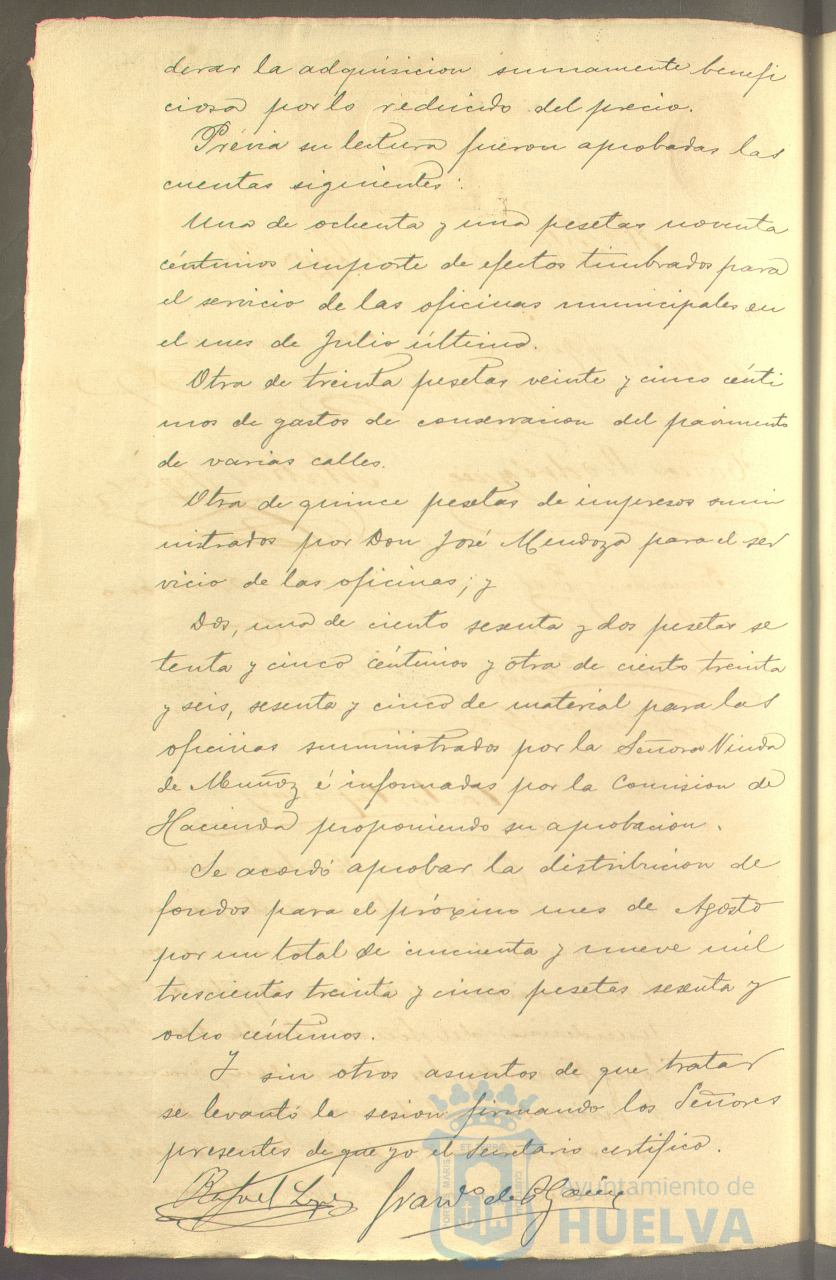 derar la adquisicion sumamente benefi
ciosa por lo reducido del precio.
Prévia su lectura fueron aprobadas las
cuentas siguientes:
Una de ochenta y una pesetas noventa
céntimos importe de efectos timbrados para
el servicio de las oficinas municipales en
el mes de Julio último.
Otra de treinta pesetas veinte y cinco cénti
mos de gastos de conservacion del pavimento
de varias calles.
Otra de quince pesetas de impresos sumi
nistrados por Don José Mendoza para el ser
vicio de las oficinas; y
Dos, una de ciento sesenta y dos pesetas se
tenta y cinco céntimos y otra de ciento treinta
y seis, sesenta y cinco de material para las
oficinas suministrados por la Señora Viuda
de Muñoz é informadas por la Comision de
Hacienda proponiendo su aprobacion.
Se acordó aprobar la distribucion de
fondos para el próximo mes de Agosto
por un total de cincuenta y nueve mil
trescientas treinta y cinco pesetas sesenta y
ocho céntimos.
Y sin otros asuntos de que tratar
se levantó la sesion firmando los Señores
presentes de que yo el Secretario certifico.
Rafael Lopez
de
Ayuntamiento de
HUELVA